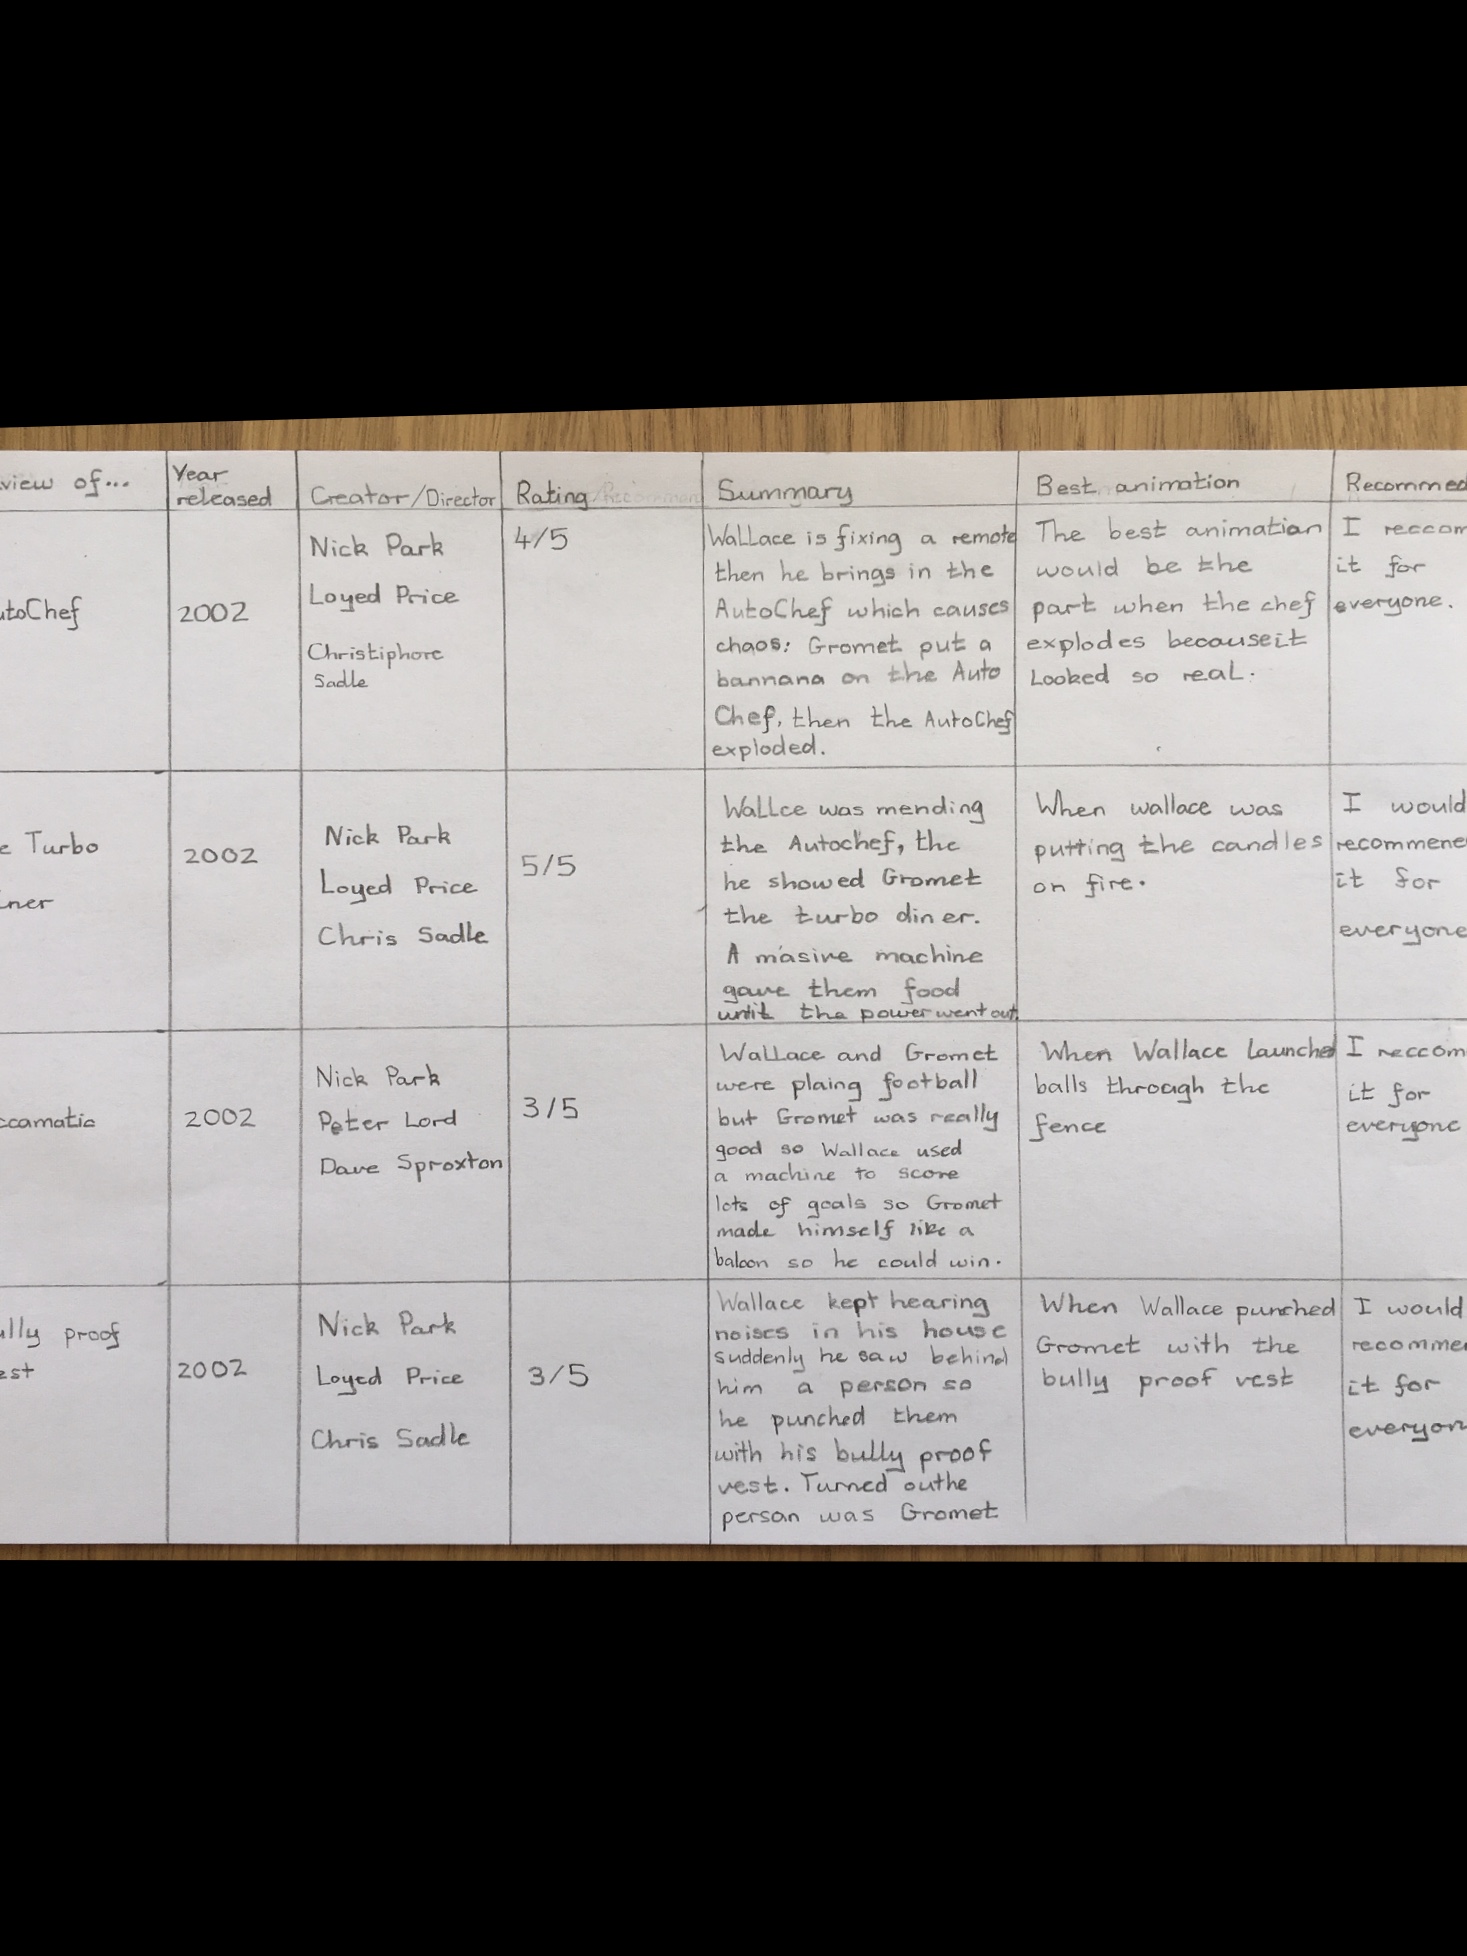 view of...
Year released
Creator/Director
Rating
Summary
Best animation
Recommed
utoChef
2002
Nick Park
Loyed Price
Christiphore
Sadle
4/5
Wallace is fixing a remote
then he brings in the
AutoChef which causes
chaos: Gromet put a
bannana on the Auto
Chef, then the AutoChef
exploded.
The best animation
would be the
part when the chef
explodes becauseit
Looked so real.
I reccom
it for
everyone.
e Turbo
iner
2002
Nick Park
Loyed Price
Chris Sadle
5/5
Wallce was mending
the Autochef, the
he showed Gromet
the turbo diner.
A masive machine
gave them food
until the power went out.
When wallace was
putting the candles
on fire.
I would
recommene
it for
everyone
ccamatic
2002
Nick Park
Peter Lord
Dave Sproxton
3/5
Wallace and Gromet
were plaing football
but Gromet was really
good so Wallace used
a machine to score
lots of goals so Gromet
made himself like a
baloon so he could win.
When Wallace launched
balls through the
fence
I reccom
it for
everyone
ully proof
est
2002
Nick Park
Loyed Price
Chris Sadle
3/5
Wallace kept hearing
noises in his house
suddenly he saw behind
him a person so
he punched them
with his bully proof
vest. Turned outhe
person was Gromet
When Wallace punched
Gromet with the
bully proof vest
I would
recommen
it for
everyon